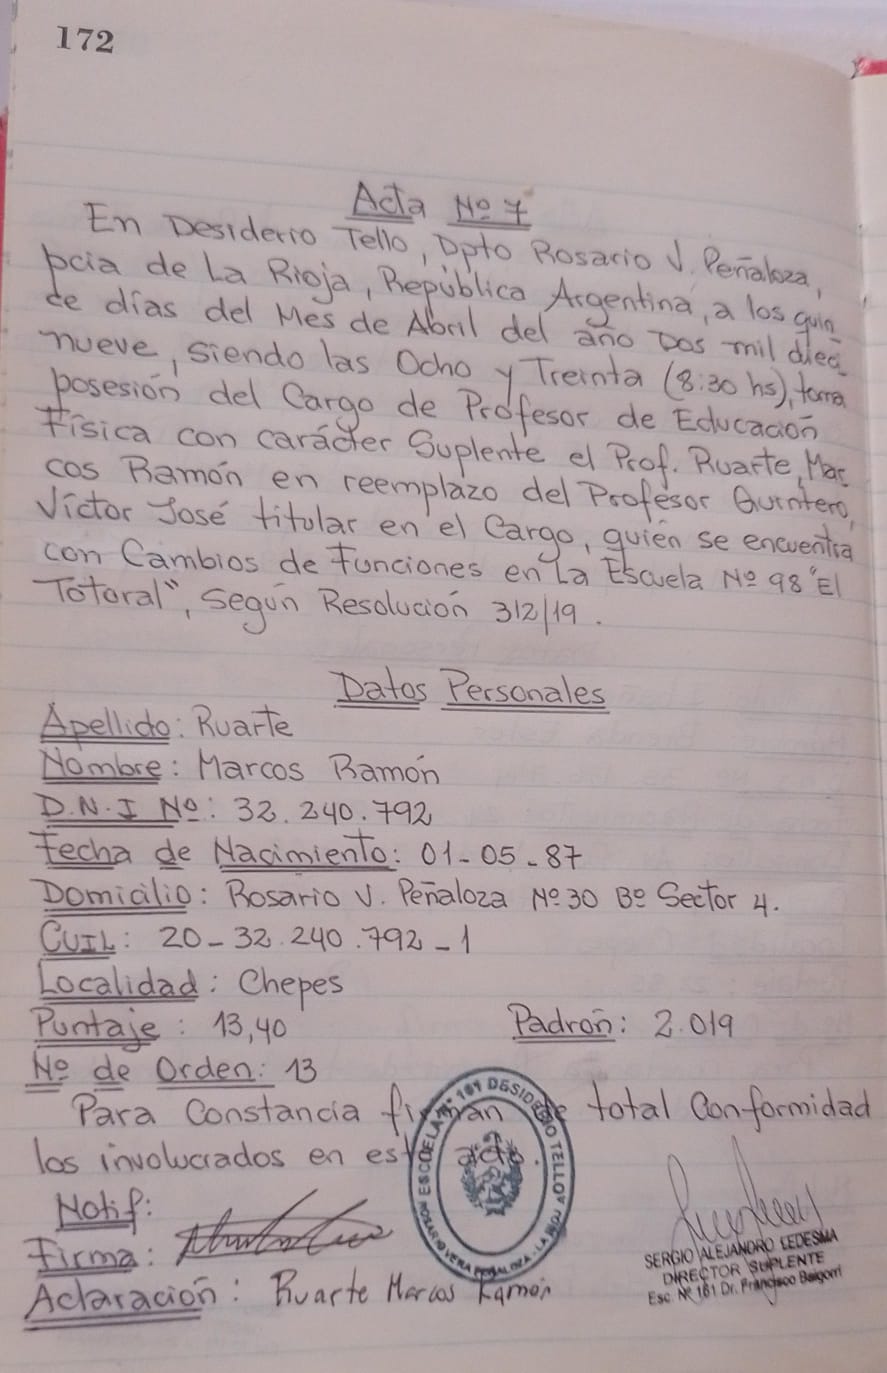 172
Acta Nº 7
En Desiderio Tello, Dpto Rosario V. Peñaloza,
pcia de La Rioja, República Argentina, a los quin
ce días del Mes de Abril del año Dos mil diec
nueve, siendo las Ocho y Treinta (8:30 hs), toma
posesión del Cargo de Profesor de Educación
Física con carácter Suplente el Prof. Ruarte, Mar
cos Ramón en reemplazo del Profesor Quintero,
Víctor José titular en el Cargo, quién se encuentra
con Cambios de Funciones en La Escuela Nº 98 "El
Totoral", Según Resolución 312/19.
Datos Personales
Apellido: Ruarte
Nombre: Marcos Ramón
D.N.I Nº: 32.240.792
Fecha de Nacimiento: 01-05-87
Domicilio: Rosario V. Peñaloza Nº 30 Bº Sector 4.
CUIL: 20-32.240.792-1
Localidad: Chepes
Puntaje: 13,40 Padrón: 2.019
Nº de Orden: 13
Para Constancia firman de total Conformidad
los involucrados en este acto.
ESCUELA Nº 181 DESIDERIO TELLO
ROSARIO VERA PEÑALOZA - LA RIOJA
Notif:
Firma:
Aclaración: Ruarte Marcos Ramón
SERGIO ALEJANDRO LEDESMA
DIRECTOR SUPLENTE
Esc. Nº 181 Dr. Francisco Baigorri